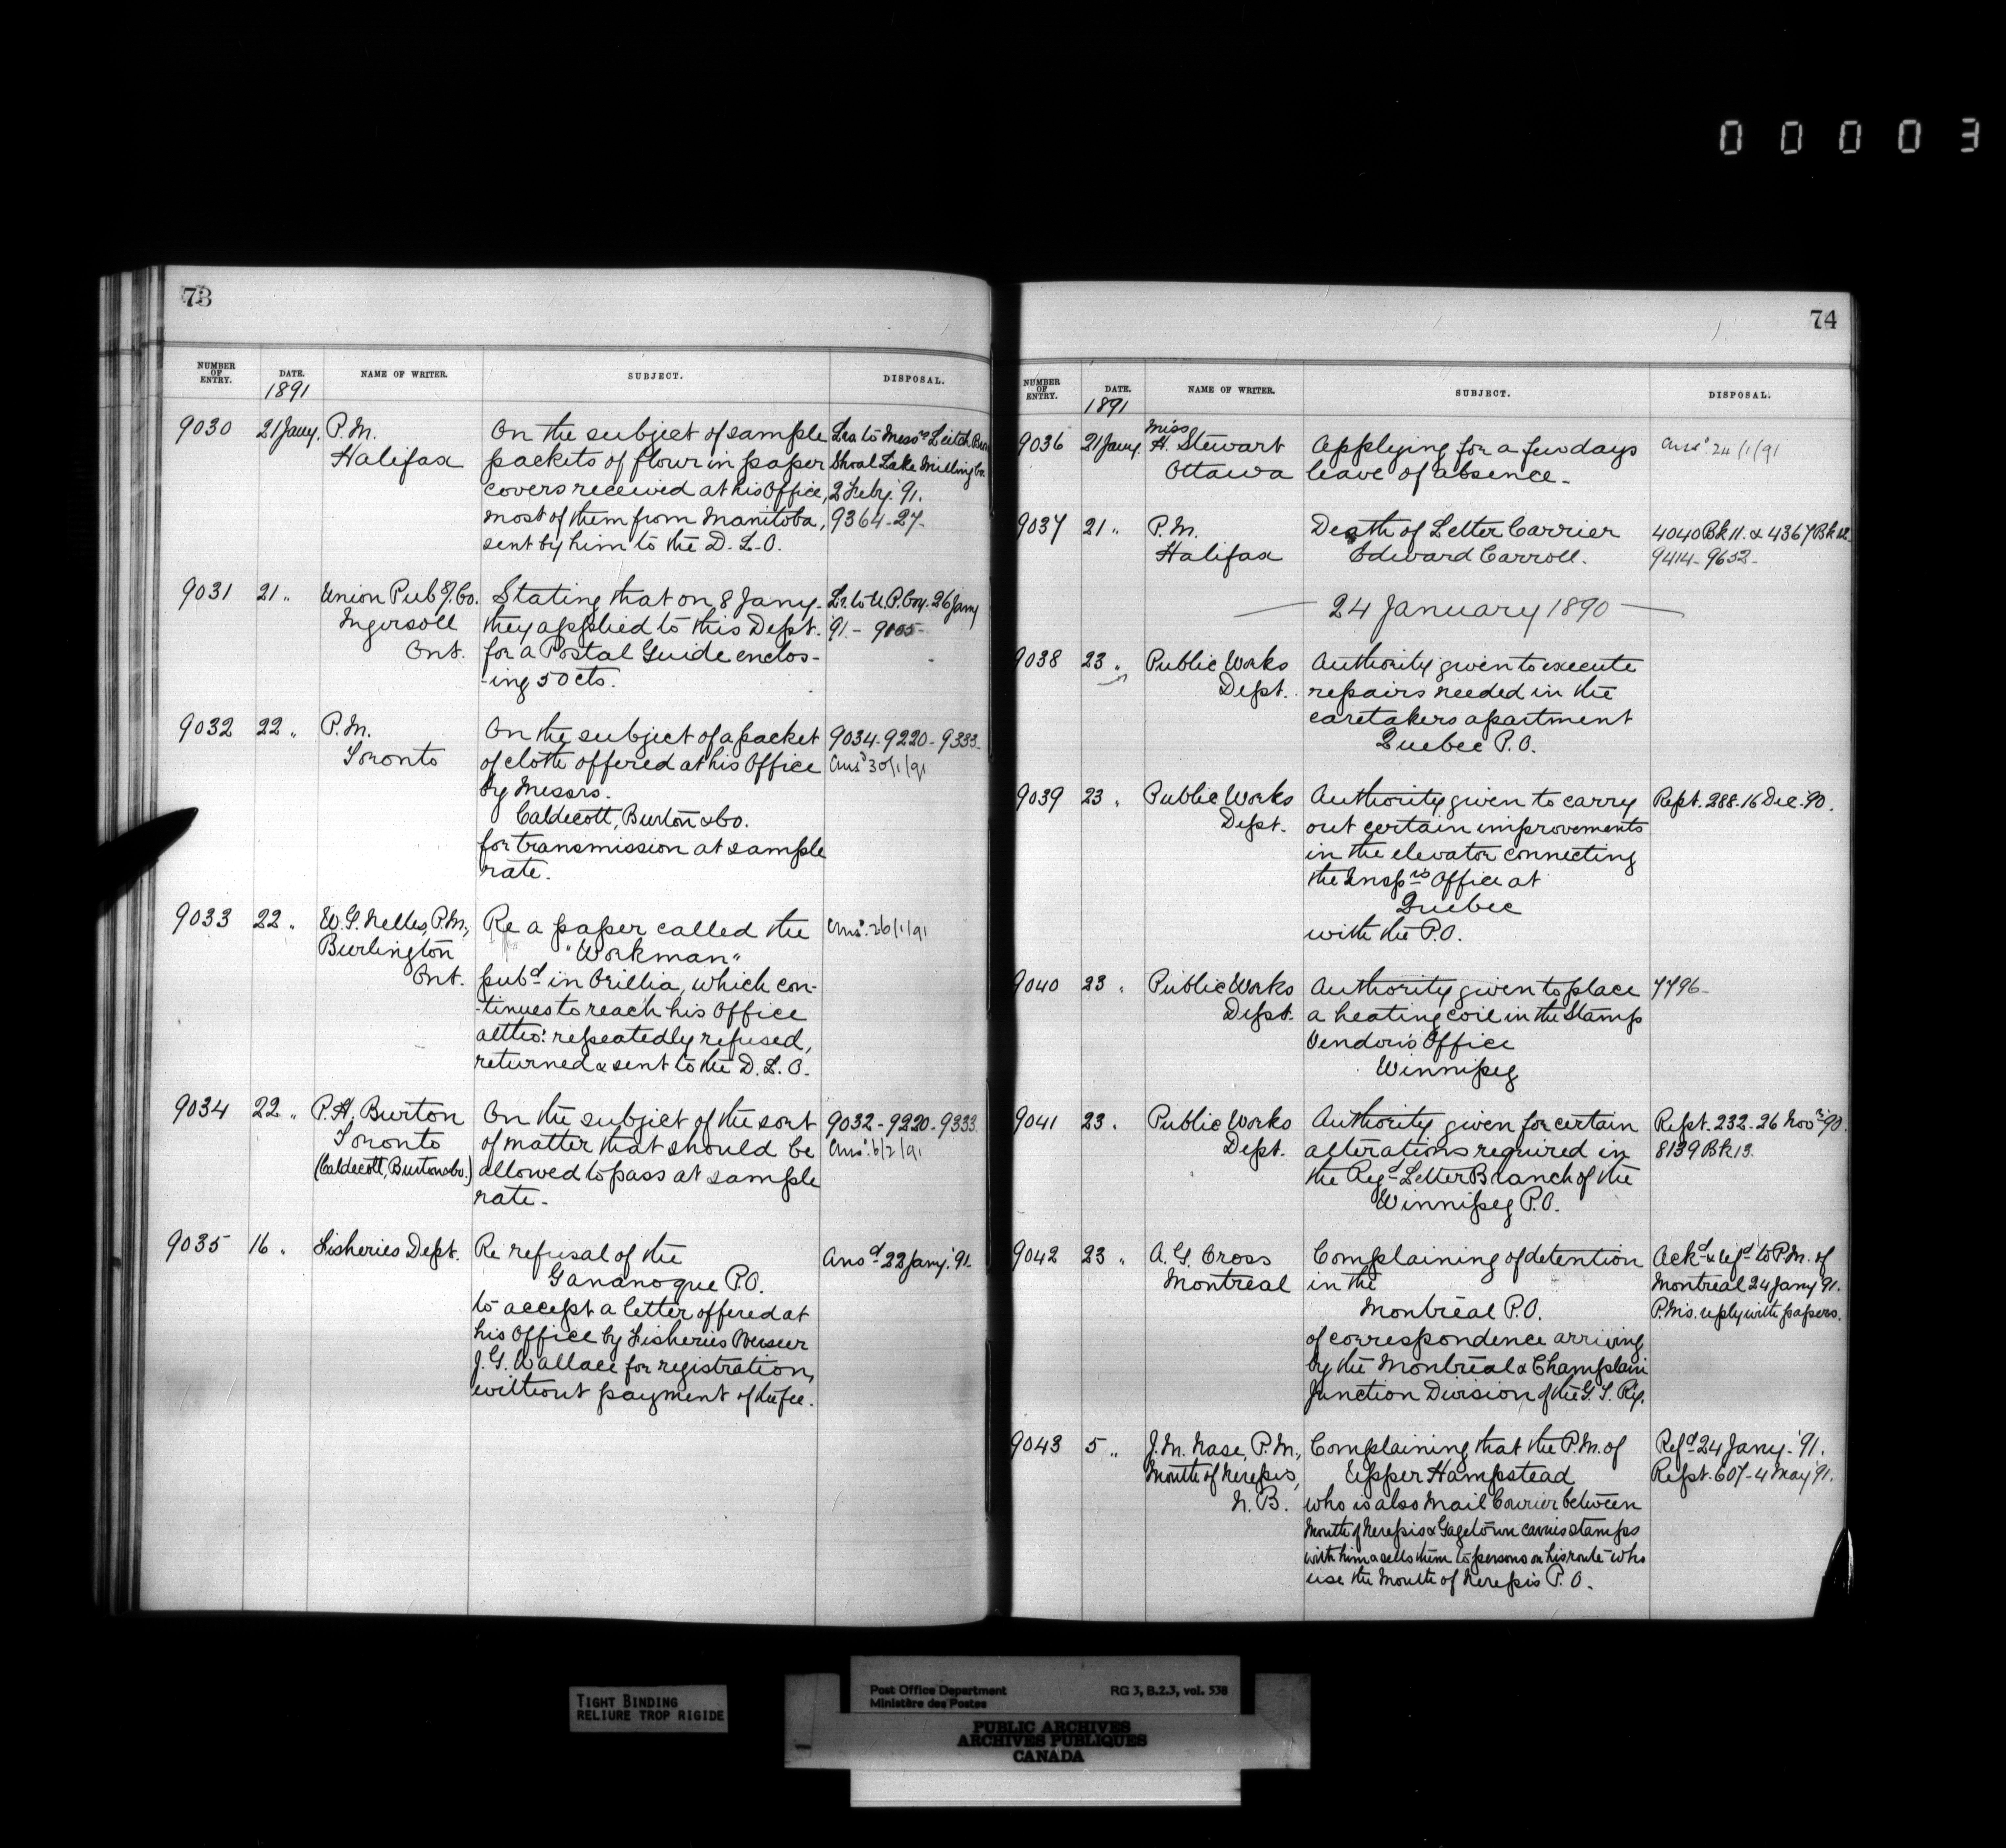 00003
73
NUMBER OF ENTRY. DATE. NAME OF WRITER. SUBJECT. DISPOSAL.
1891
9030 21 Jany. P.M. On the subject of sample Lrs. to Messrs Leitch Bros
Halifax packets of flour in paper Shoal Lake Milling Co.
covers received at his Office, 2 Feby. '91.
most of them from Manitoba, 9364-27-
sent by him to the D.L.O.
9031 21 " Union Pubg. Co. Stating that on 8 Jany. Lr. to U.P. Coy. 26 Jany
Ingersoll they applied to this Dept. 91. -
Ont. for a Postal Guide enclos-
-ing 50cts.
9032 22 " P.M. On the subject of a packet 9034-9220-9333-
Toronto of cloth offered at his Office Ansd 30/1/91
by Messrs.
Caldecott, Burton & Co.
for transmission at sample
rate.
9033 22 " W.G. Nelles, P.M., Re a paper called the Ansd. 26/1/91
Burlington "Workman"
Ont. pubd in Orillia, which con-
-tinues to reach his Office
altho: repeatedly refused,
returned & sent to the D.L.O.
9034 22 " P.H. Burton On the subject of the sort 9032-9220-9333.
Toronto of matter that should be Ansd. 6/2/91
(Caldecott, Burton & Co.) allowed to pass at sample
rate.
9035 16 " Fisheries Dept. Re refusal of the Ansd 22 Jany. '91.
Gananoque P.O.
to accept a letter offered at
his Office by Fisheries Overseer
J.G. Wallace for registration,
without payment of the fee.
74
NUMBER OF ENTRY. DATE. NAME OF WRITER. SUBJECT. DISPOSAL.
1891
Miss
9036 21 Jany. H. Stewart Applying for a few days Ansd. 24/1/91
Ottawa leave of absence.
9037 21 " P.M. Death of Letter Carrier 4040 Bk 11. & 4367 Bk 12.
Halifax Edward Carroll. 9414-9652-
24 January 1890
9038 23 " Public Works Authority given to execute
Dept. repairs needed in the
caretakers apartment
Quebec P.O.
9039 23 " Public Works Authority given to carry Rept. 288-16 Dec. '90.
Dept. out certain improvements
in the elevator connecting
the Insprs Office at
Quebec
with the P.O.
9040 23 " Public Works Authority given to place 7796-
Dept. a heating coil in the Stamp
Vendor's Office
Winnipeg
9041 23 " Public Works Authority given for certain Rept. 232-26 Novr '90.
Dept. alterations required in 8139 Bk 13.
the Regd Letter Branch of the
Winnipeg P.O.
9042 23 " A.G. Cross Complaining of detention Ackd & refd to P.M. of
Montreal in the Montreal 24 Jany '91.
Montreal P.O. P.M's. reply with papers.
of correspondence arriving
by the Montreal & Champlain
Junction Division of the G.T. Ry.
9043 5 " J.M. Nase, P.M., Complaining that the P.M. of Refd 24 Jany. '91.
Mouth of Nerepis, Upper Hampstead Rept. 607-4 May '91.
N.B. who is also Mail Courier between
Mouth of Nerepis & Gagetown carries stamps
with him & sells them to persons on his route who
use the Mouth of Nerepis P.O.
TIGHT BINDING
RELIURE TROP RIGIDE
Post Office Department RG 3, B.2.3, vol. 538
Ministère des Postes
PUBLIC ARCHIVES
ARCHIVES PUBLIQUES
CANADA